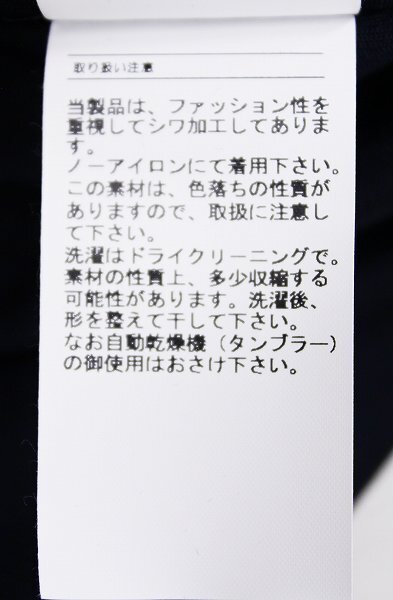 取り扱い注意
当製品は、ファッション性を
重視してシワ加工してありま
す。
ノーアイロンにて着用下さい。
この素材は、色落ちの性質が
ありますので、取扱に注意し
て下さい。
洗濯はドライクリーニングで。
素材の性質上、多少収縮する
可能性があります。洗濯後、
形を整えて干して下さい。
なお自動乾燥機（タンブラー）
の御使用はおさけ下さい。